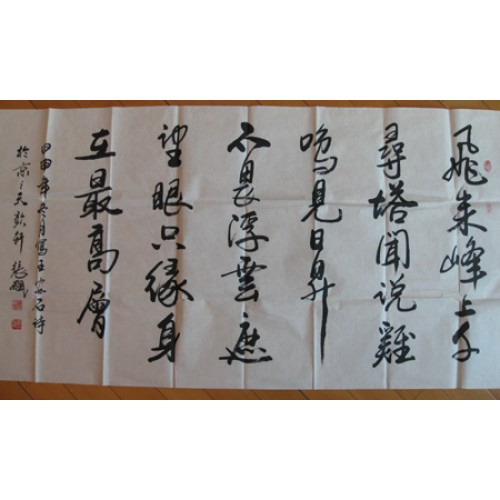 飛来峰上千
尋塔聞說雞
鳴見日昇
不畏浮雲遮
望眼只緣身
在最高層
甲申年冬月寫王安石詩
於京之天